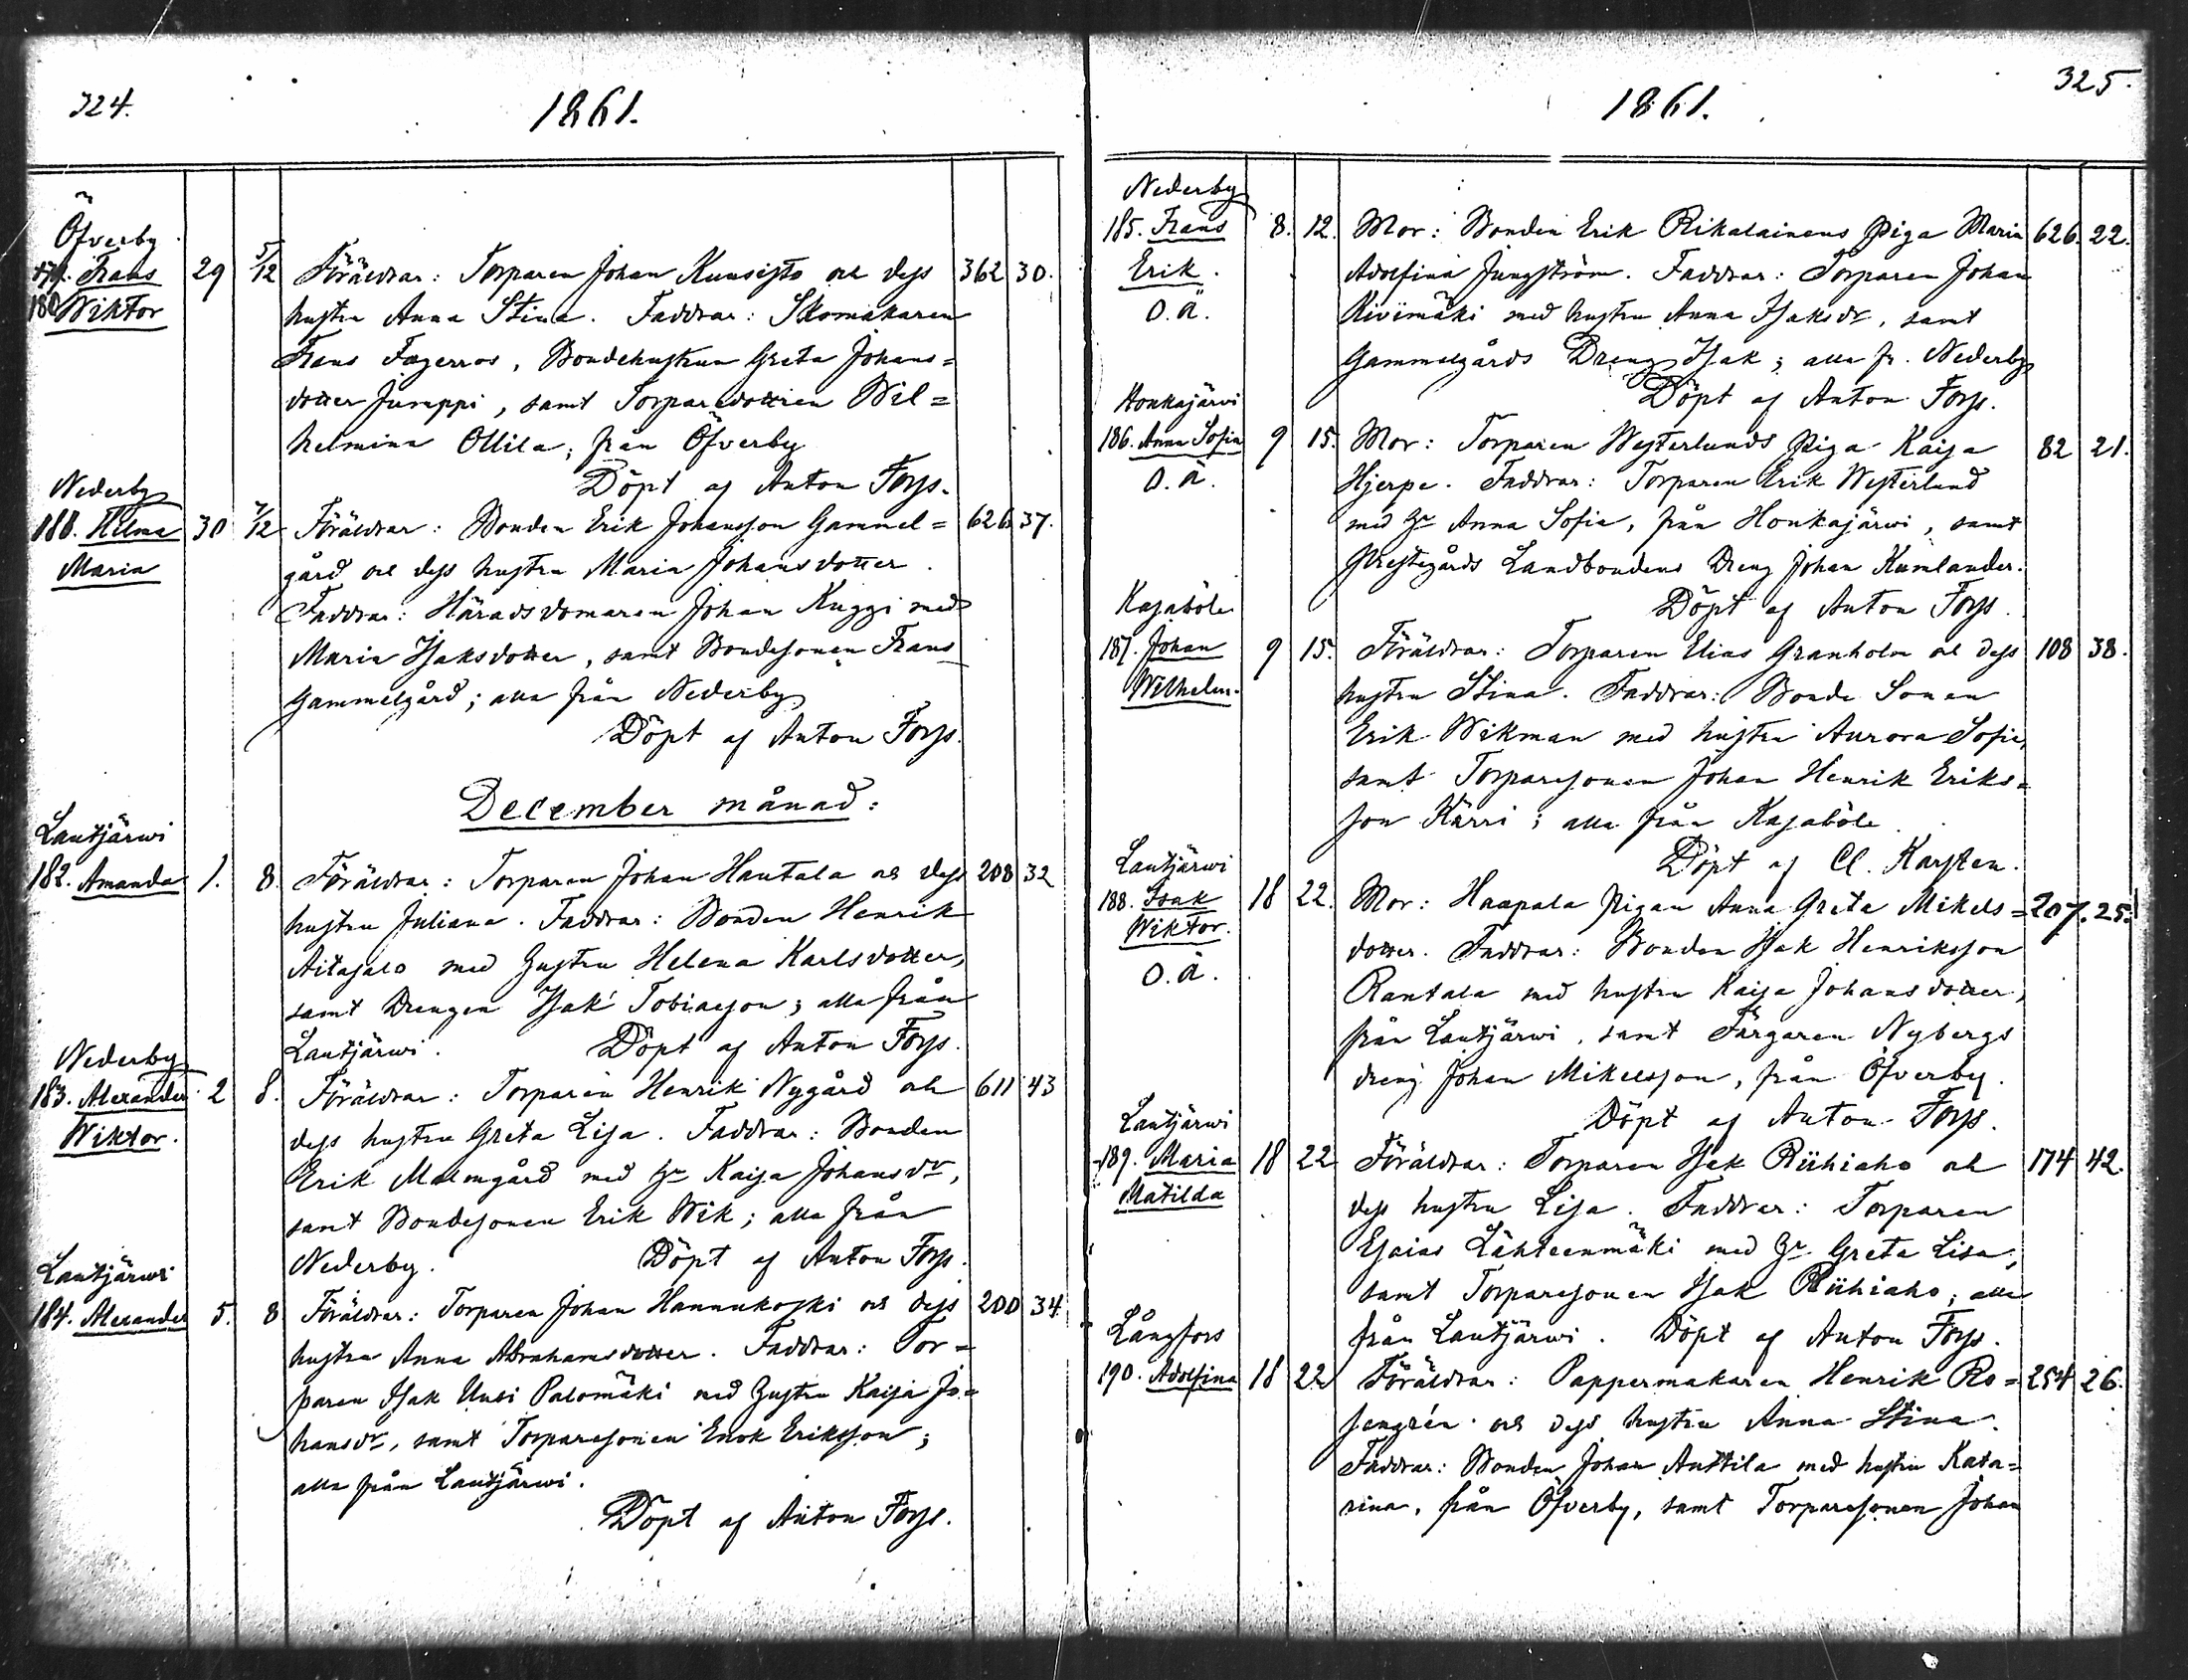 324.
1861.
Öfverby
179. Frans 29 5/12 Föräldrar: Torparen Johan Kunsisto och dess 362 30.
180 Wiktor hustru Anna Stina. Faddrar: Skomakaren
Frans Fagerros, Bondehustrun Greta Johans=
dotter Jumppi, samt Torparedottren Wil=
helmina Ollila, från Öfverby
Döpt af Anton Forss.
Nederby
188. Hilma 30 7/12 Föräldrar: Bonden Erik Johansson Gammel= 626 37.
Maria gård och dess hustru Maria Johansdotter.
Faddrar: Häradsdomaren Johan Kuggi med
Maria Isaksdotter, samt Bondesonen Frans
Gammelgård; alla från Nederby
Döpt af Anton Forss.
December månad:
Lautjärwi
182. Amanda 1. 8. Föräldrar: Torparen Johan Hautala och dess 208 32
hustru Juliana. Faddrar: Bonden Henrik
Aitasalo med Hustru Helena Karlsdotter,
samt Drengen Isak Tobiasson; alla från
Lautjärwi. Döpt af Anton Forss.
Nederby
183. Alexander 2 8. Föräldrar: Torparen Henrik Nygård och 611 43
Wiktor. dess hustru Greta Lisa. Faddrar: Bonden
Erik Malmgård med Hu Kaisa Johansdr,
samt Bondesonen Erik Wik; alla från
Nederby. Döpt af Anton Forss.
Lautjärwi
184. Alexander 5. 8 Föräldrar: Torparen Johan Hannukoski och dess 200 34.
hustru Anna Abrahamsdotter. Faddrar: Tor=
paren Isak Uusi Palomäki med Hustru Kaisa Jo=
hansdr, samt Torparesonen Enok Eriksson;
alla från Lautjärwi.
Döpt af Anton Forss.
325.
1861.
Nederby
185. Frans 8. 12. Mor: Bonden Erik Rikalainens Piga Maria 626. 22.
Erik. Adolfina Jungström. Faddrar: Torparen Johan
O.ä. Kivimäki med hustru Anna Isaksdr, samt
Gammelgårds Dreng Isak; alla fr. Nederby
Döpt af Anton Forss.
Honkajärvi
186. Anna Sofia 9 15. Mor: Torparen Westerlunds Piga Kaisa 82 21.
O.ä. Hjerpe. Faddrar: Torparen Erik Westerlund
med Hu Anna Sofia, från Honkajärwi, samt
Prestegårds Landbondens Dreng Johan Kumlander.
Döpt af Anton Forss.
Kasaböle
187. Johan 9 15. Föräldrar: Torparen Elias Granholm och dess 108 38.
Wilhelm. hustru Stina. Faddrar: Bonde Sonen
Erik Wikman med hustru Aurora Sofia,
samt Torparesonen Johan Henrik Eriks=
son Kärri; alla från Kasaböle.
Döpt af Cl. Karsten.
Lautjärwi
188. Isak 18 22. Mor: Haapala Pigan Anna Greta Mikels= 207. 25.
Wiktor. dotter. Faddrar: Bonden Isak Henriksson
O.ä. Rantala med hustru Kaisa Johansdotter,
från Lautjärwi, samt Färgaren Nybergs
dreng Johan Mikelsson, från Öfverby.
Döpt af Anton Forss.
Lautjärwi
189. Maria 18 22 Föräldrar: Torparen Isak Riihiaho och 174 42.
Matilda dess hustru Lisa. Faddrar: Torparen
Esaias Lähteenmäki med Hu Greta Lisa,
samt Torparesonen Isak Riihiaho; alla
från Lautjärwi. Döpt af Anton Forss.
Långfors
190. Adolfina 18 22 Föräldrar: Pappermakaren Henrik Ro= 254 26.
sengrén och dess hustru Anna Stina.
Faddrar: Bonden Johan Anttila med hustru Kata=
rina, från Öfverby, samt Torparesonen Johan